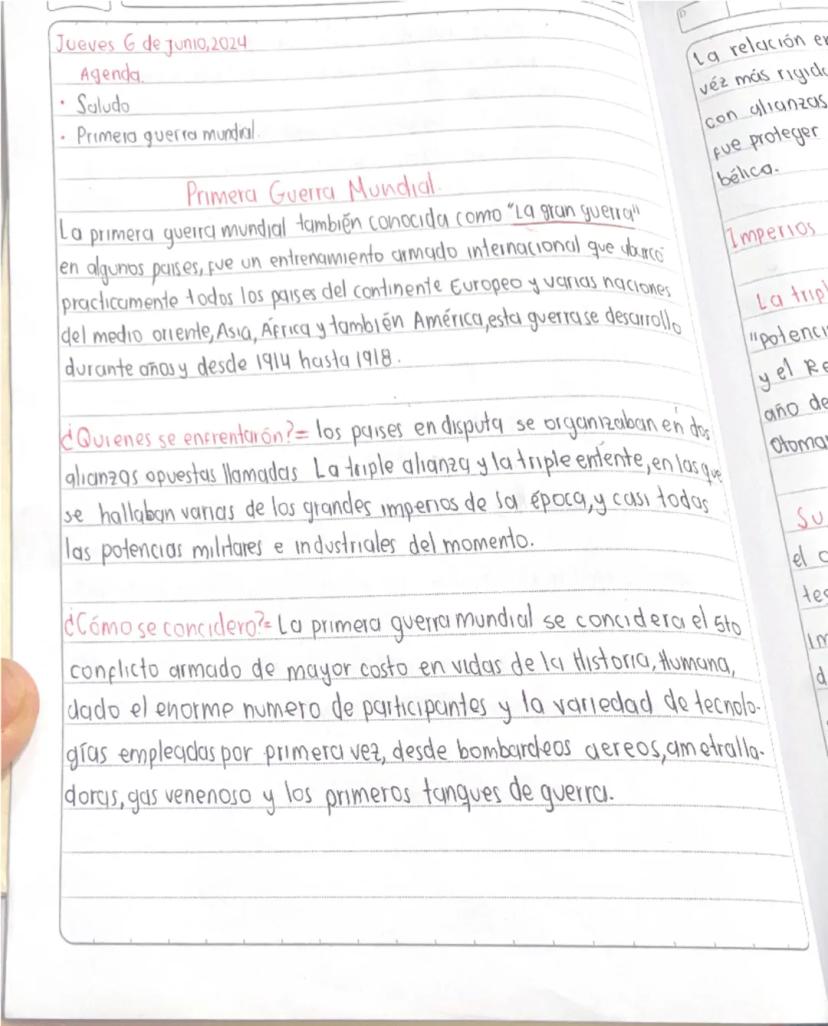 Jueves 6 de junio,2024
Agenda.
· Saludo
· Primera guerra mundial.
Primera Guerra Mundial.
La primera guerra mundial también conocida como "La gran guerra"
en algunos paises, fue un entrenamiento armado internacional que abarcó
practicamente todos los paises del continente Europeo y varias naciones
del medio oriente, Asia, África y también América, esta guerra se desarrollo
durante años y desde 1914 hasta 1918.
¿Quienes se enfrentarón?= los paises en disputa se organizaban en dos
alianzas opuestas llamadas La triple alianza y la triple entente, en las que
se hallaban varias de los grandes imperios de la época, y casi todas
las potencias militares e industriales del momento.
¿Cómo se concidero?= La primera guerra mundial se concidera el 5to
conflicto armado de mayor costo en vidas de la Historia, Humana,
dado el enorme numero de participantes y la variedad de tecnolo-
gías empleadas por primera vez, desde bombardeos aereos, ametralla-
doras, gas venenoso y los primeros tanques de guerra.
La relación
véz más
con alianzas
fue proteger
bélica.
Imperios
La
y el
año de
el